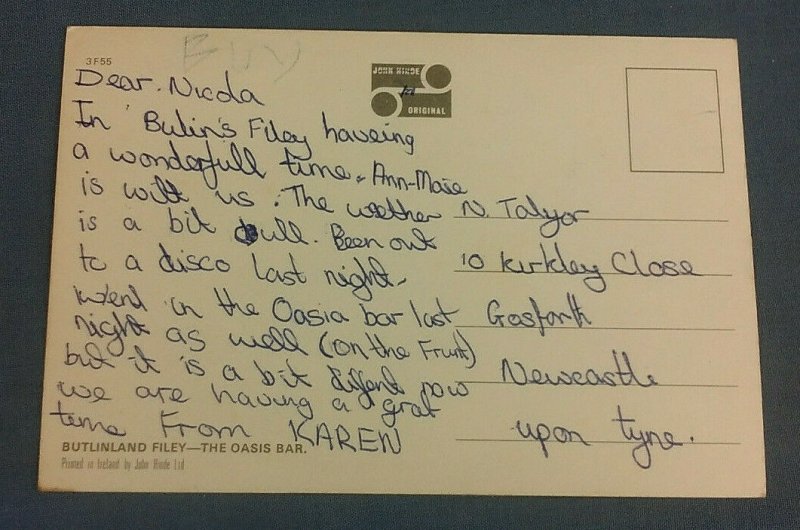 BUY
3F55
JOHN HINDE
ORIGINAL
Dear. Nicola
In Butlin's Filey haveing
a wonderfull time. Ann-Marie
is with us. The weather
is a bit dull. Been out
to a disco last night.
Went in the Oasia bar last
night as well (on the Frunt)
but it is a bit diffent now
we are having a grat
time From KAREN
N. Talyor
10 Kirkley Close
Gosforth
Newcastle
upon tyne.
BUTLINLAND FILEY—THE OASIS BAR.
Printed in Ireland by John Hinde Ltd